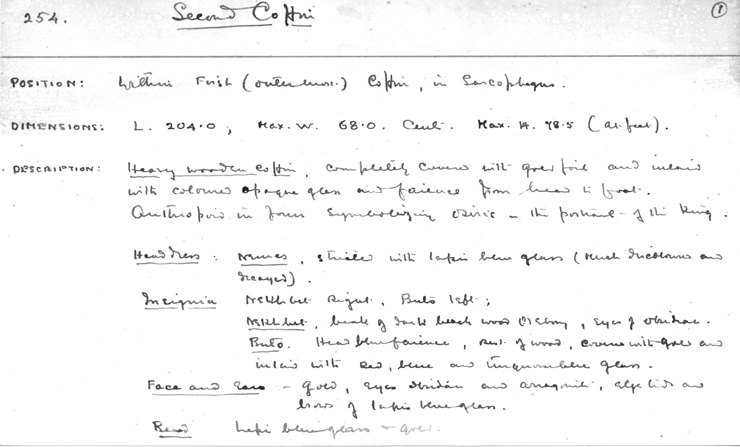 254. Second Coffin 1
POSITION: Within First (outermost.) Coffin, in Sarcophagus.
DIMENSIONS: L. 204.0; Max. W. 68.0. Cent. Max. H. 78.5 (at feet).
DESCRIPTION: Heavy wooden coffin, completely covered with gold foil and inlaid
with coloured opaque glass and faience from head to foot.
Anthropoid in form symbolizing Osiris in the portrait of the King.
Headdress: Nemes, striated with lapis blue glass (much discoloured and
decayed).
Insignia Nekhbet Right, Buto left;
Nekhbet, beak of dark black wood ebony, eyes of obsidian.
Buto. Head blue faience, of wood, covered with gold and
inlaid with red, blue and turquoise blue glass.
Face and Ears - gold, eyes obsidian and aragonite, eyelids and
brows of lapis blue glass.
Beard lapis blue glass + gold.